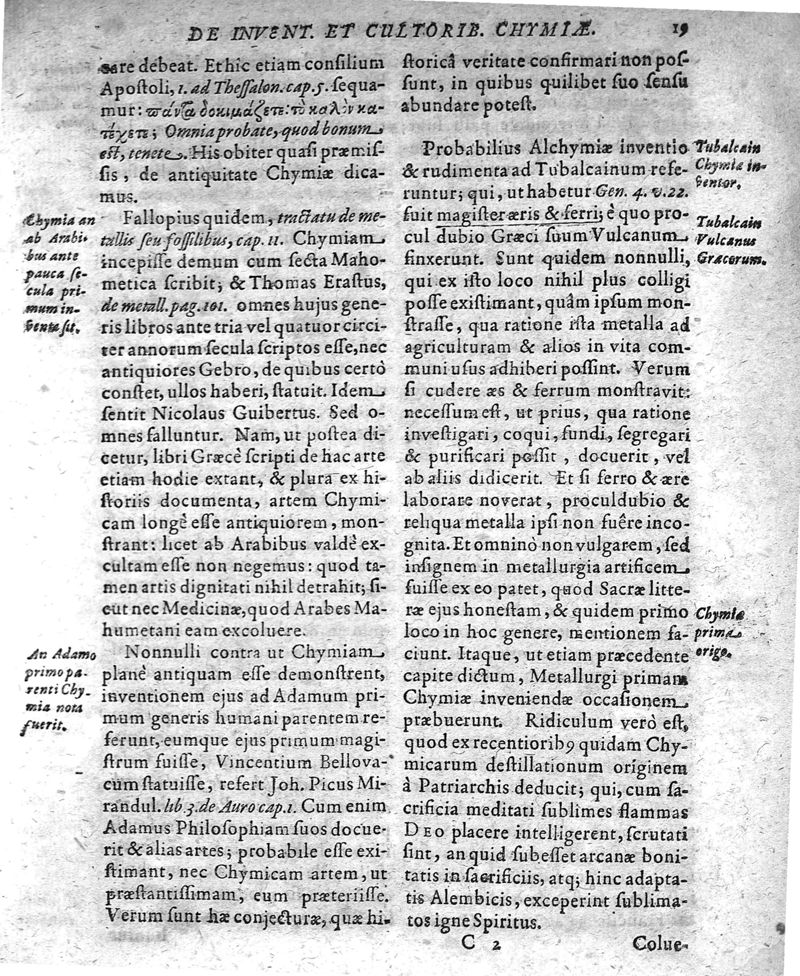 DE INVENT. ET CULTORIB. CHYMIÆ. 19
sare debeat. Et hîc etiam consilium
Apostoli, 1. ad Thessalon. cap. 5. sequa-
mur: πάντα δοκιμάζετε: τὸ καλὸν κα-
τέχετε; Omnia probate, quod bonum
est, tenete. His obiter quasi præmis-
sis, de antiquitate Chymiæ dica-
mus.
Chymia an
ab Arabi-
bus ante
pauca se-
cula pri-
mum in-
venta sit.
Fallopius quidem, tractatu de me-
tallis seu fossilibus, cap. 11. Chymiam
incepisse demum cum secta Maho-
metica scribit; & Thomas Erastus,
de metall. pag. 101. omnes hujus gene-
ris libros ante tria vel quatuor circi-
ter annorum secula scriptos esse, nec
antiquiores Gebro, de quibus certò
constet, ullos haberi, statuit. Idem
sentit Nicolaus Guibertus. Sed o-
mnes falluntur. Nam, ut postea di-
cetur, libri Græcè scripti de hac arte
etiam hodie extant, & plura ex hi-
storiis documenta, artem Chymi-
cam longè esse antiquiorem, mon-
strant: licet ab Arabibus valdè ex-
cultam esse non negemus: quod ta-
men artis dignitati nihil detrahit; si-
cut nec Medicinæ, quod Arabes Ma-
humetani eam excoluere.
An Adamo
primo pa-
renti Chy-
mia nota
fuerit.
Nonnulli contra ut Chymiam
planè antiquam esse demonstrent,
inventionem ejus ad Adamum pri-
mum generis humani parentem re-
ferunt, eumque ejus primum magi-
strum fuisse, Vincentium Bellova-
cum statuisse, refert Joh. Picus Mi-
randul. lib. 3. de Auro cap. 1. Cum enim
Adamus Philosophiam suos docue-
rit & alias artes; probabile esse exi-
stimant, nec Chymicam artem, ut
præstantissimam, eum præteriisse.
Verum sunt hæ conjecturæ, quæ hi-
storicâ veritate confirmari non pos-
sunt, in quibus quilibet suo sensu
abundare potest.
Probabilius Alchymiæ inventio
& rudimenta ad Tubalcainum refe-
runtur; qui, ut habetur Gen. 4. v. 22.
fuit magister æris & ferri; è quo pro-
cul dubio Græci suum Vulcanum
finxerunt. Sunt quidem nonnulli,
qui ex isto loco nihil plus colligi
posse existimant, quâm ipsum mon-
strasse, qua ratione ista metalla ad
agriculturam & alios in vita com-
muni usus adhiberi possint. Verum
si cudere æs & ferrum monstravit:
necessum est, ut prius, qua ratione
investigari, coqui, fundi, segregari
& purificari possit, docuerit, vel
ab aliis didicerit. Et si ferro & ære
laborare noverat, proculdubio &
reliqua metalla ipsi non fuêre inco-
gnita. Et omnino non vulgarem, sed
insignem in metallurgia artificem
fuisse ex eo patet, quod Sacræ litte-
ræ ejus honestam, & quidem primo
loco in hoc genere, mentionem fa-
ciunt. Itaque, ut etiam præcedente
capite dictum, Metallurgi primam
Chymiæ inveniendæ occasionem
præbuerunt. Ridiculum verò est,
quod ex recentiorib9 quidam Chy-
micarum destillationum originem
à Patriarchis deducit; qui, cum sa-
crificia meditati sublimes flammas
DEO placere intelligerent, scrutati
sint, an quid subesset arcanæ boni-
tatis in sacrificiis, atq; hinc adapta-
tis Alembicis, exceperint sublima-
tos igne Spiritus.
Tubalcain
Chymiæ in-
ventor.
Tubalcain
Vulcanus
Græcorum.
Chymiæ
prima
origo.
C 2 Colue-